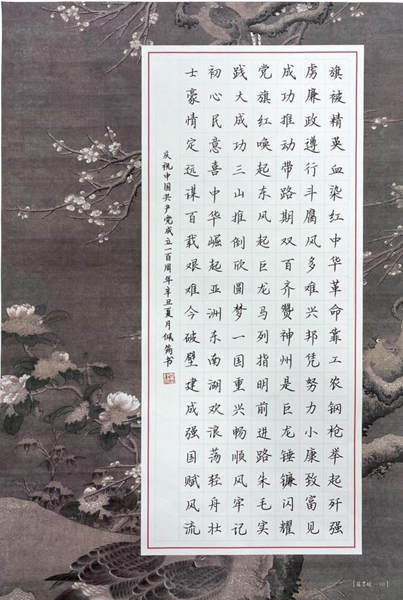 旗被精英血染红中华革命靠工农钢枪举起歼强
虏廉政遵行斗腐风多难兴邦凭努力小康致富见
成功推动带路期双百齐赞神州是巨龙锤镰闪耀
党旗红唤起东风起巨龙马列指明前进路朱毛实
践大成功三山推倒欣圆梦一国重兴畅顺风牢记
初心民意喜中华崛起亚洲东南湖欢浪荡轻舟壮
士豪情定远谋百载艰难今破壁建成强国赋风流
庆祝中国共产党成立一百周年辛丑夏月佩筠书